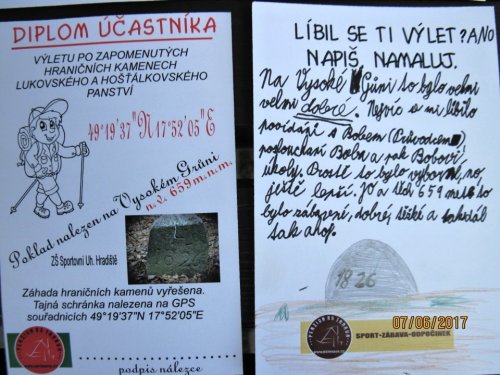 DIPLOM ÚČASTNÍKA
VÝLETU PO ZAPOMENUTÝCH
HRANIČNÍCH KAMENECH
LUKOVSKÉHO A HOŠŤÁLKOVSKÉHO
PANSTVÍ
49°19'37"N 17°52'05"E
Poklad nalezen na Vysokém Grúni
n.v. 659m.n.m.
ZŠ Sportovní Uh. Hradiště
Záhada hraničních kamenů vyřešena.
Tajná schránka nalezena na GPS
souřadnicích 49°19'37"N 17°52'05"E
podpis nálezce
LÍBIL SE TI VÝLET? ANO
NAPIŠ, NAMALUJ.
Na Vysoké Grúni to bylo velmi
velmi dobré. Nejvíc se mi líbilo
povídání s Bobem (Průvodcem)
poslouchání Boba a pak Bobovi
úkoly. Prostě to bylo výborný, no,
ještě lepší. Jo a těch 659 metrů to
bylo zábavné, dobré, těžké a
tak ano.
1826
07/06/2017
SPORT-ZÁBAVA-ODPOČINEK